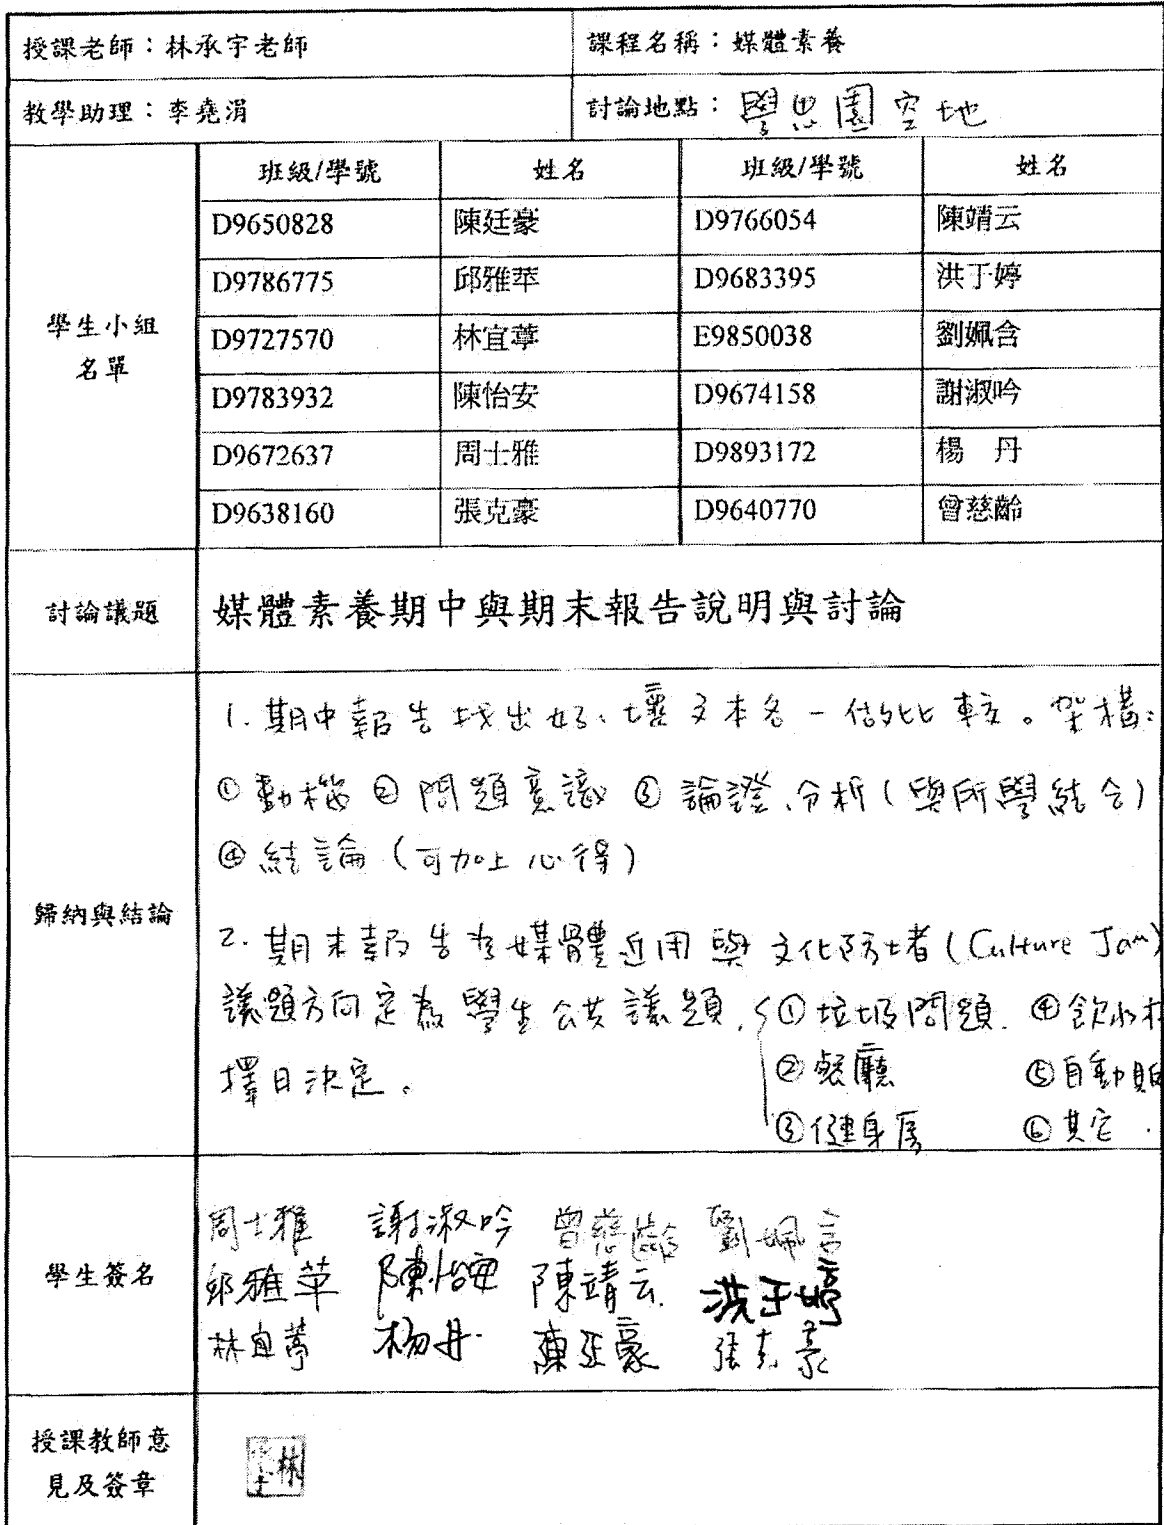 授課老師：林承宇老師 課程名稱：媒體素養
教學助理：李堯涓 討論地點：學思園空地
班級/學號 姓名 班級/學號 姓名
學生小組名單
D9650828 陳廷豪 D9766054 陳靖云
D9786775 邱雅苹 D9683395 洪于婷
D9727570 林宜葶 E9850038 劉姵含
D9783932 陳怡安 D9674158 謝淑吟
D9672637 周士雅 D9893172 楊　丹
D9638160 張克豪 D9640770 曾慈齡
討論議題 媒體素養期中與期末報告說明與討論
歸納與結論
1. 期中報告找出好、壞文本各一做比較。架構：
①動機 ②問題意識 ③論證、分析(與所學結合)
④結論(可加上心得)
2. 期末報告為媒體近用與文化防堵者(Culture Jam)
議題方向定為學生公共議題, ①垃圾問題. ④飲水
擇日決定。 ②餐廳 ⑤自動販
③健身房 ⑥其它.
學生簽名
周士雅 謝淑吟 曾慈齡 劉姵含
邱雅苹 陳怡安 陳靖云 洪于婷
林宜葶 楊丹 陳廷豪 張克豪
授課教師意
見及簽章
林